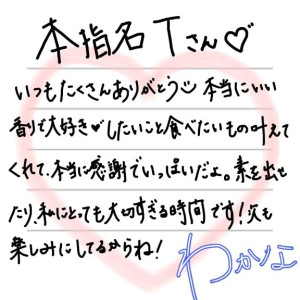 本指名Tさん♡
いつもたくさんありがとう 本当にいい
香りで大好き♥したいこと食べたいもの叶えて
くれて、本当に感謝でいっぱいだよ。素を出せ
たり、私にとっても大切すぎる時間です！次も
楽しみにしてるからね！